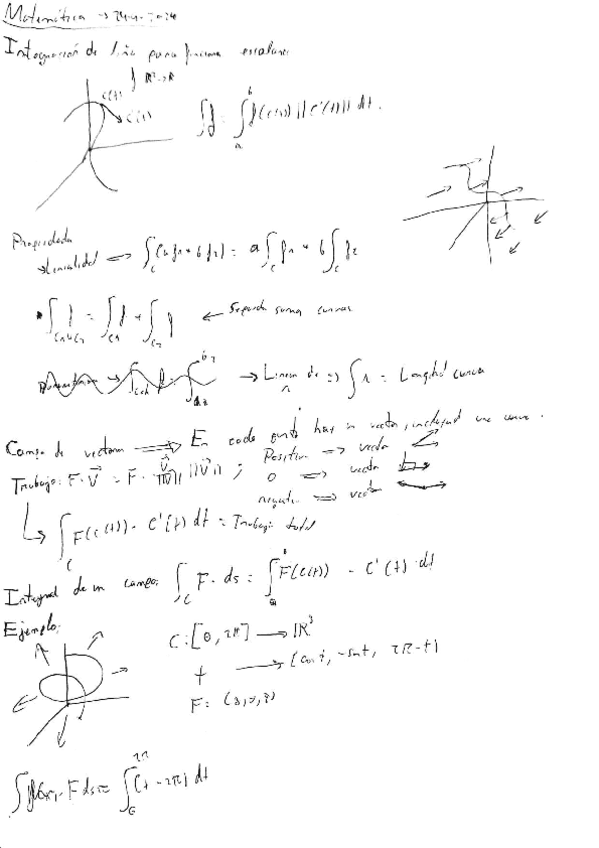 Matemática → 24-4-2024
Integración de línea para funciones escalares
f R³→R
C(t)
C'(t)
∫f = ∫_a^b f(C(t)) ||C'(t)|| dt.
Propiedades
→Linealidad ⇒ ∫_C (a f1 + b f2) = a ∫_C f1 + b ∫_C f2
• ∫_{C1∪C2} f = ∫_{C1} f + ∫_{C2} f ← Separada suma curvas
→ Linea de 1 ⇒ ∫ 1 = Longitud curva
Campo de vectores ⇒ En cada punto hay un vector, incluyendo una curva.
Trabajo: F·V = F· V/||V|| ||V|| ; Positivo ⇒ vector
0 ⇒ vector
negativo ⇒ vector
∫_C F(C(t)) · C'(t) dt = Trabajo total
Integral de un campo: ∫_C F· ds = ∫_a^b F(C(t)) · C'(t) dt
Ejemplo:
C: [0, 2π] → R³
t → (cos t, -sin t, 2π - t)
F:
F ds = ∫_0^{2π} (t - 2π) dt